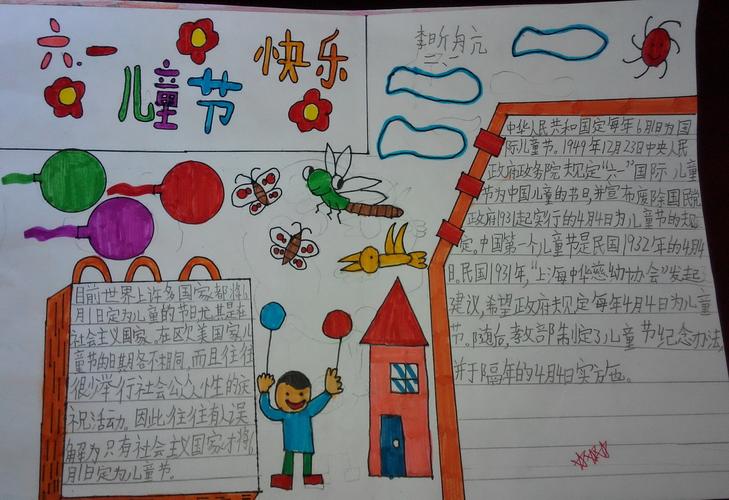 六一
儿童节
快乐
李昕舟元
二、一
中华人民共和国定每年6月1日为国
际儿童节。1949年12月23日中央人民
政府政务院规定“六一”国际儿童
节为中国儿童的节日,并宣布废除国民党
政府1931起实行的4月4日为儿童节的规
定。中国第一个儿童节是民国1932年的4月4
日。民国1931年,“上海中华慈幼协会”发起
建议,希望政府规定每年4月4日为儿童
节。随后,教部制定了儿童节纪念办法,
并于隔年的4月4日实施。
目前世界上许多国家都将6
月1日定为儿童的节日尤其是在
社会主义国家。在欧美国家儿
童节的日期各不相同,而且往往
很少举行社会公众性的庆
祝活动。因此往往有人误
解为只有社会主义国家才将6
月1日定为儿童节。